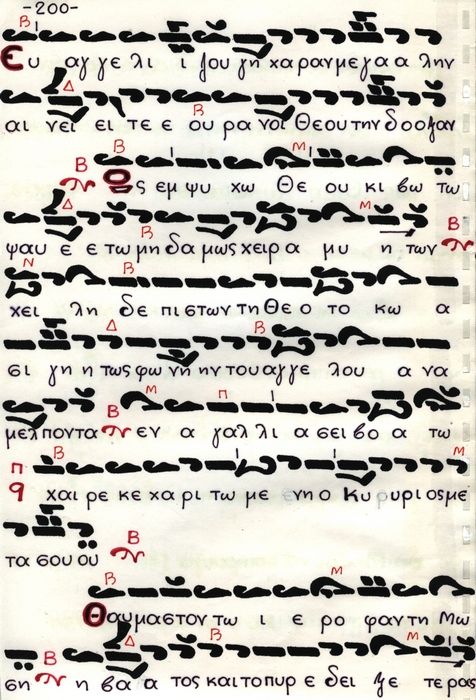 -200-
Ευ αγ γε λι ι ζου γη χα ραν με γα α λην
αι νει ει τε ε ου ρα νοι Θε ου την δο ο ξαν
Ως εμ ψυ χω Θε ου κι βω τω
ψαυ ε ε τω μη δα μως χει ρ α μυ η των
χει λη δε πι στων τη Θε ο το κω α
σι γη η τως φω νη ην του αγ γε λου α να
μελ πον τα εν α γαλ λι α σει βο α τω
χαι ρε κε χα ρι τω με ε νη ο Κυ ρυ ρι ος με
τα σου ου
Θαυ μα στον τω ι ε ρο φαν τη Μω
ση η βα α τος και το πυρ ε δει ξε τε ρας